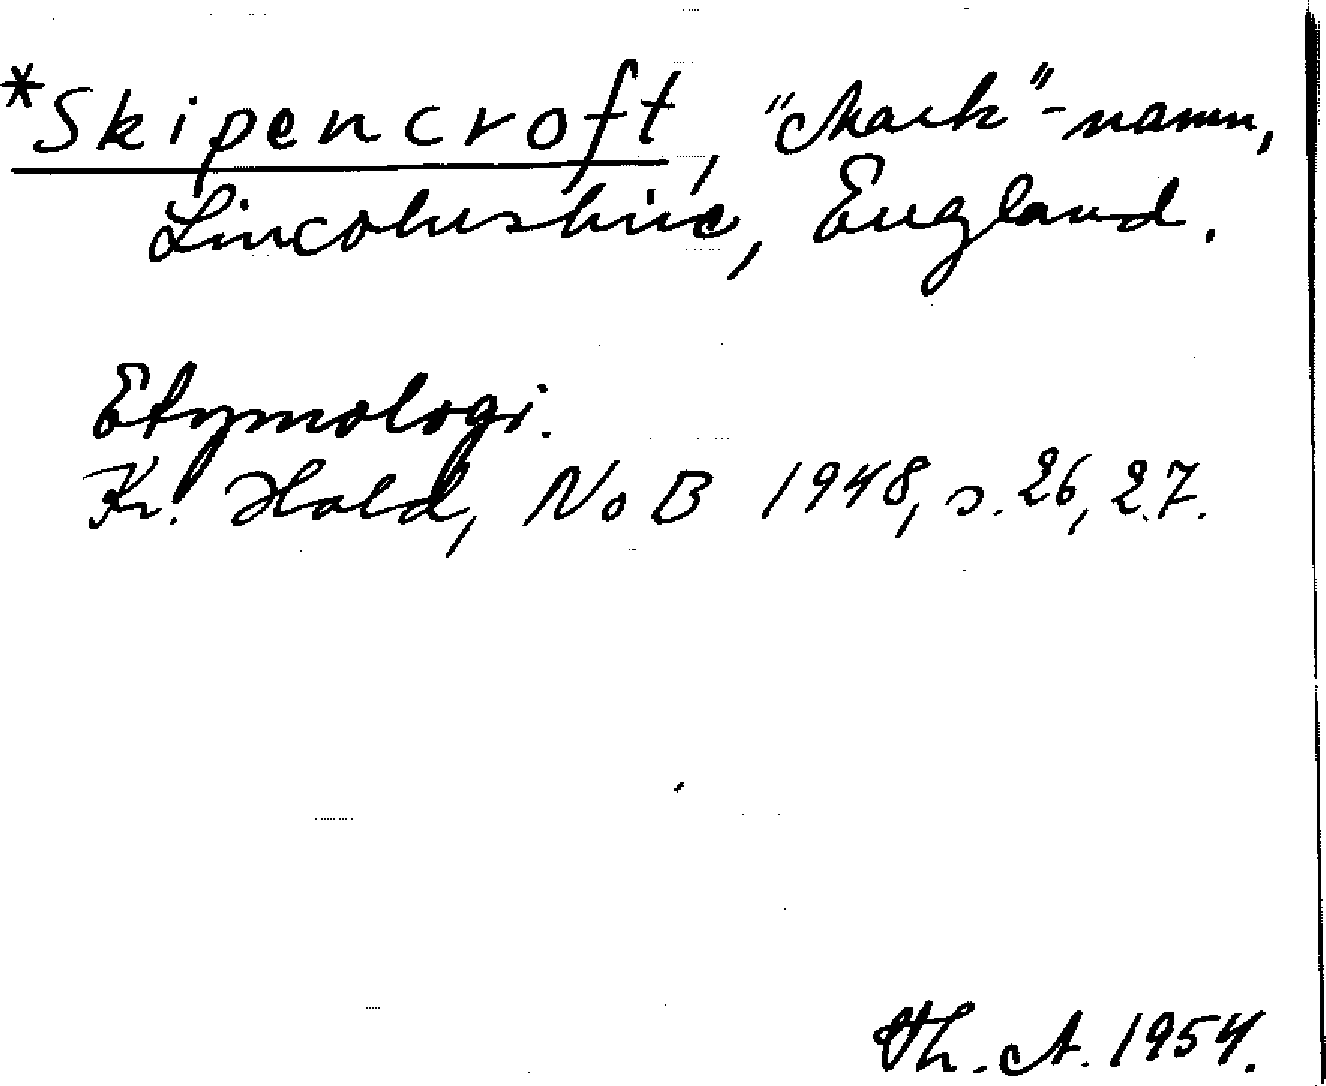 *Skipencroft, "Mark"-namn,
Lincolnshire, England.
Etymologi.
Kr. Hald, NoB 1948, s. 26, 27.
Th. A. 1954.